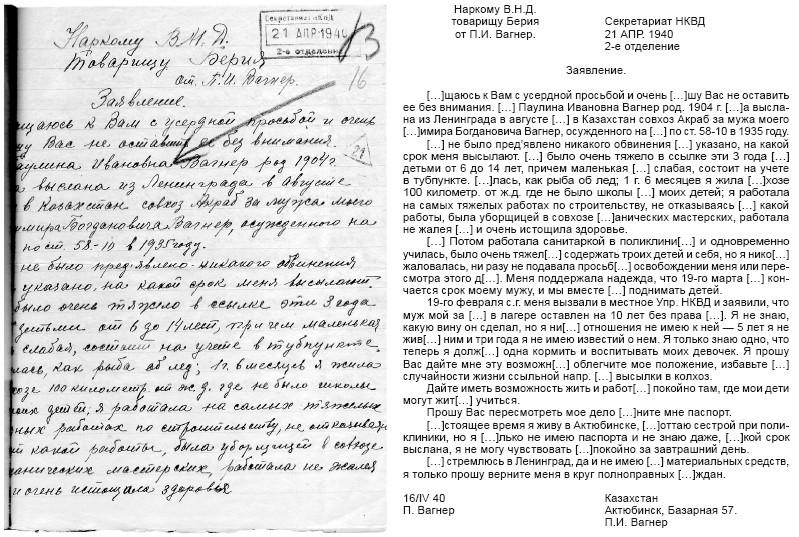 Наркому В.Н.Д.
Товарищу Берия
от П.И. Вагнер.
Секретариат НКВД
21 АПР. 1940
2-е отделение
16
21
Заявление.
щаюсь к Вам с усердной просьбой и очень
шу Вас не оставить ее без внимания.
аулина Ивановна Вагнер род 1904 г.
а выслана из Ленинграда в августе
в Казахстан совхоз Акраб за мужа моего
имира Богдановича Вагнер, осужденного на
по ст. 58-10 в 1935 году.
не было пред'явлено никакого обвинения
указано, на какой срок меня высылают.
было очень тяжело в ссылке эти 3 года
детьми от 6 до 14 лет, причем маленькая
слабая, состоит на учете в тубпункте.
лась, как рыба об лед; 1 г. 6 месяцев я жила
хозе 100 километр. от ж.д. где не было школы
моих детей; я работала на самых тяжелых
ных работах по строительству, не отказываясь
от какой работы, была уборщицей в совхозе
анических мастерских, работала не жалея
и очень истощила здоровье
Наркому В.Н.Д.
товарищу Берия
от П.И. Вагнер.
Секретариат НКВД
21 АПР. 1940
2-е отделение
Заявление.
[…]щаюсь к Вам с усердной просьбой и очень […]шу Вас не оставить
ее без внимания. […] Паулина Ивановна Вагнер род. 1904 г. […]а высла-
на из Ленинграда в августе […] в Казахстан совхоз Акраб за мужа моего
[…]имира Богдановича Вагнер, осужденного на […] по ст. 58-10 в 1935 году.
[…] не было пред'явлено никакого обвинения […] указано, на какой
срок меня высылают. […] было очень тяжело в ссылке эти 3 года […]
детьми от 6 до 14 лет, причем маленькая […] слабая, состоит на учете
в тубпункте. […]лась, как рыба об лед; 1 г. 6 месяцев я жила […]хозе
100 километр. от ж.д. где не было школы […] моих детей; я работала
на самых тяжелых работах по строительству, не отказываясь […] какой
работы, была уборщицей в совхозе […]анических мастерских, работала
не жалея […] и очень истощила здоровье.
[…] Потом работала санитаркой в поликлини[…] и одновременно
училась, было очень тяжел[…] содержать троих детей и себя, но я нико[…]
жаловалась, ни разу не подавала просьб[…] освобождении меня или пере-
смотра этого д[…]. Меня поддержала надежда, что 19-го марта […] кон-
чается срок моему мужу, и мы вместе […] поднимать детей.
19-го февраля с.г. меня вызвали в местное Упр. НКВД и заявили, что
муж мой за […] в лагере оставлен на 10 лет без права […]. Я не знаю,
какую вину он сделал, но я ни[…] отношения не имею к ней — 5 лет я не
жив[…] ним и три года я не имею известий о нем. Я только знаю одно, что
теперь я долж[…] одна кормить и воспитывать моих девочек. Я прошу
Вас дайте мне эту возможн[…] облегчите мое положение, избавьте […]
случайности жизни ссыльной напр. […] высылки в колхоз.
Дайте иметь возможность жить и работ[…] покойно там, где мои дети
могут жит[…] учиться.
Прошу Вас пересмотреть мое дело […]ните мне паспорт.
[…]стоящее время я живу в Актюбинске, […]оттаю сестрой при поли-
клиники, но я […]лько не имею паспорта и не знаю даже, […]кой срок
выслана, я не могу чувствовать […]покойно за завтрашний день.
[…] стремлюсь в Ленинград, да и не имею […] материальных средств,
я только прошу верните меня в круг полноправных […]ждан.
16/IV 40
П. Вагнер
Казахстан
Актюбинск, Базарная 57.
П.И. Вагнер